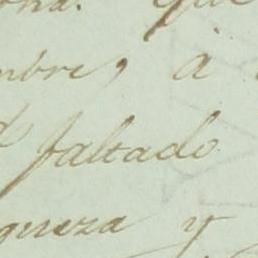 que
mbre, á
faltado
queza y